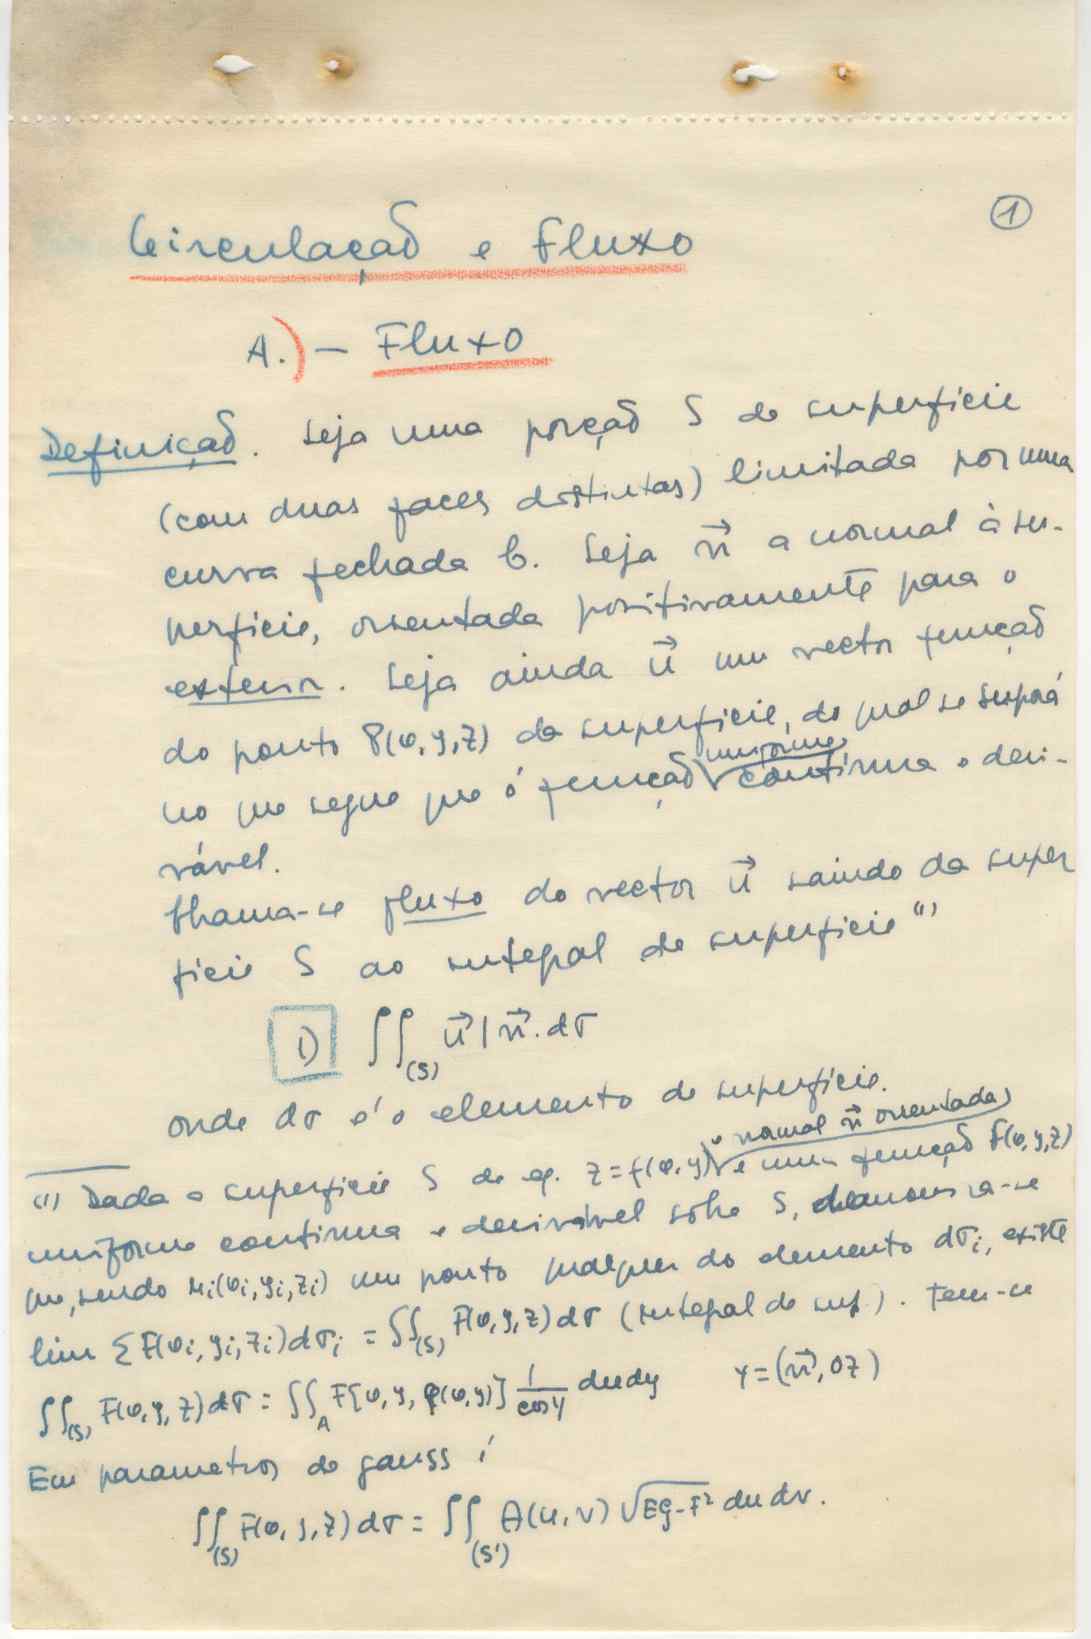 ①
Circulação e Fluxo
A.) — Fluxo
Definição. Seja uma porção S de superficie
(com duas faces distintas) limitada por uma
curva fechada C. Seja n⃗ a normal à su-
perficie, orientada positivamente para o
exterior. Seja ainda u⃗ um vector função
do ponto P(x,y,z) da superficie, do qual se suporá
uniforme
no que segue que é função continua e deri-
vável.
Chama-se fluxo do vector u⃗ saindo da super
ficie S ao integral de superficie (1)
1) ∬(S) u⃗ | n⃗ . dσ
onde dσ é o elemento de superficie.
e normal n⃗ orientada
(1) Dada a superficie S de eq. z = f(x,y) e uma função F(x,y,z)
uniforme continua e derivável sobre S, demonstra-se
que, sendo Mi(xi,yi,zi) um ponto qualquer do elemento dσi, existe
lim Σ F(xi,yi,zi)dσi = ∬(S) F(x,y,z)dσ (integral de sup.). Tem-se
∬(S) F(x,y,z)dσ = ∬A F[x,y,φ(x,y)] 1/cosγ dxdy γ=(n⃗,oz)
Em parametros de gauss é
∬(S) F(x,y,z)dσ = ∬(S') A(u,v) √EG-F² du dv.